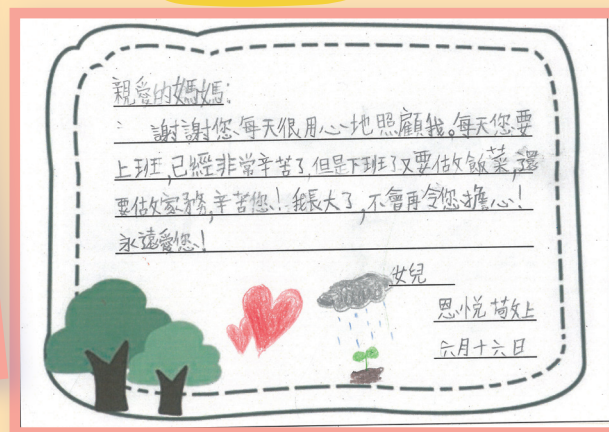 親愛的媽媽:
謝謝您每天很用心地照顧我。每天您要
上班,已經非常辛苦了,但是下班了又要做飯菜,還
要做家務,辛苦您!我長大了,不會再令您擔心!
永遠愛您!
女兒
恩悅敬上
六月十六日